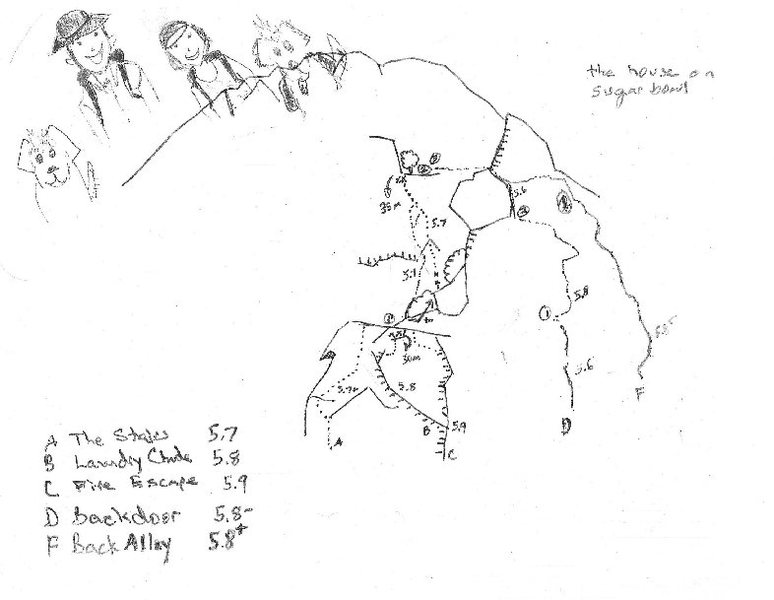 the house on
sugar bowl
5.6
35m
5.7
5.7
5.8
30m
5.7+
5.8
5.6
B
5.9
F
A
D
C
A The Stairs 5.7
B Laundry Chute 5.8
C Fire Escape 5.9
D Backdoor 5.8-
F Back Alley 5.8+